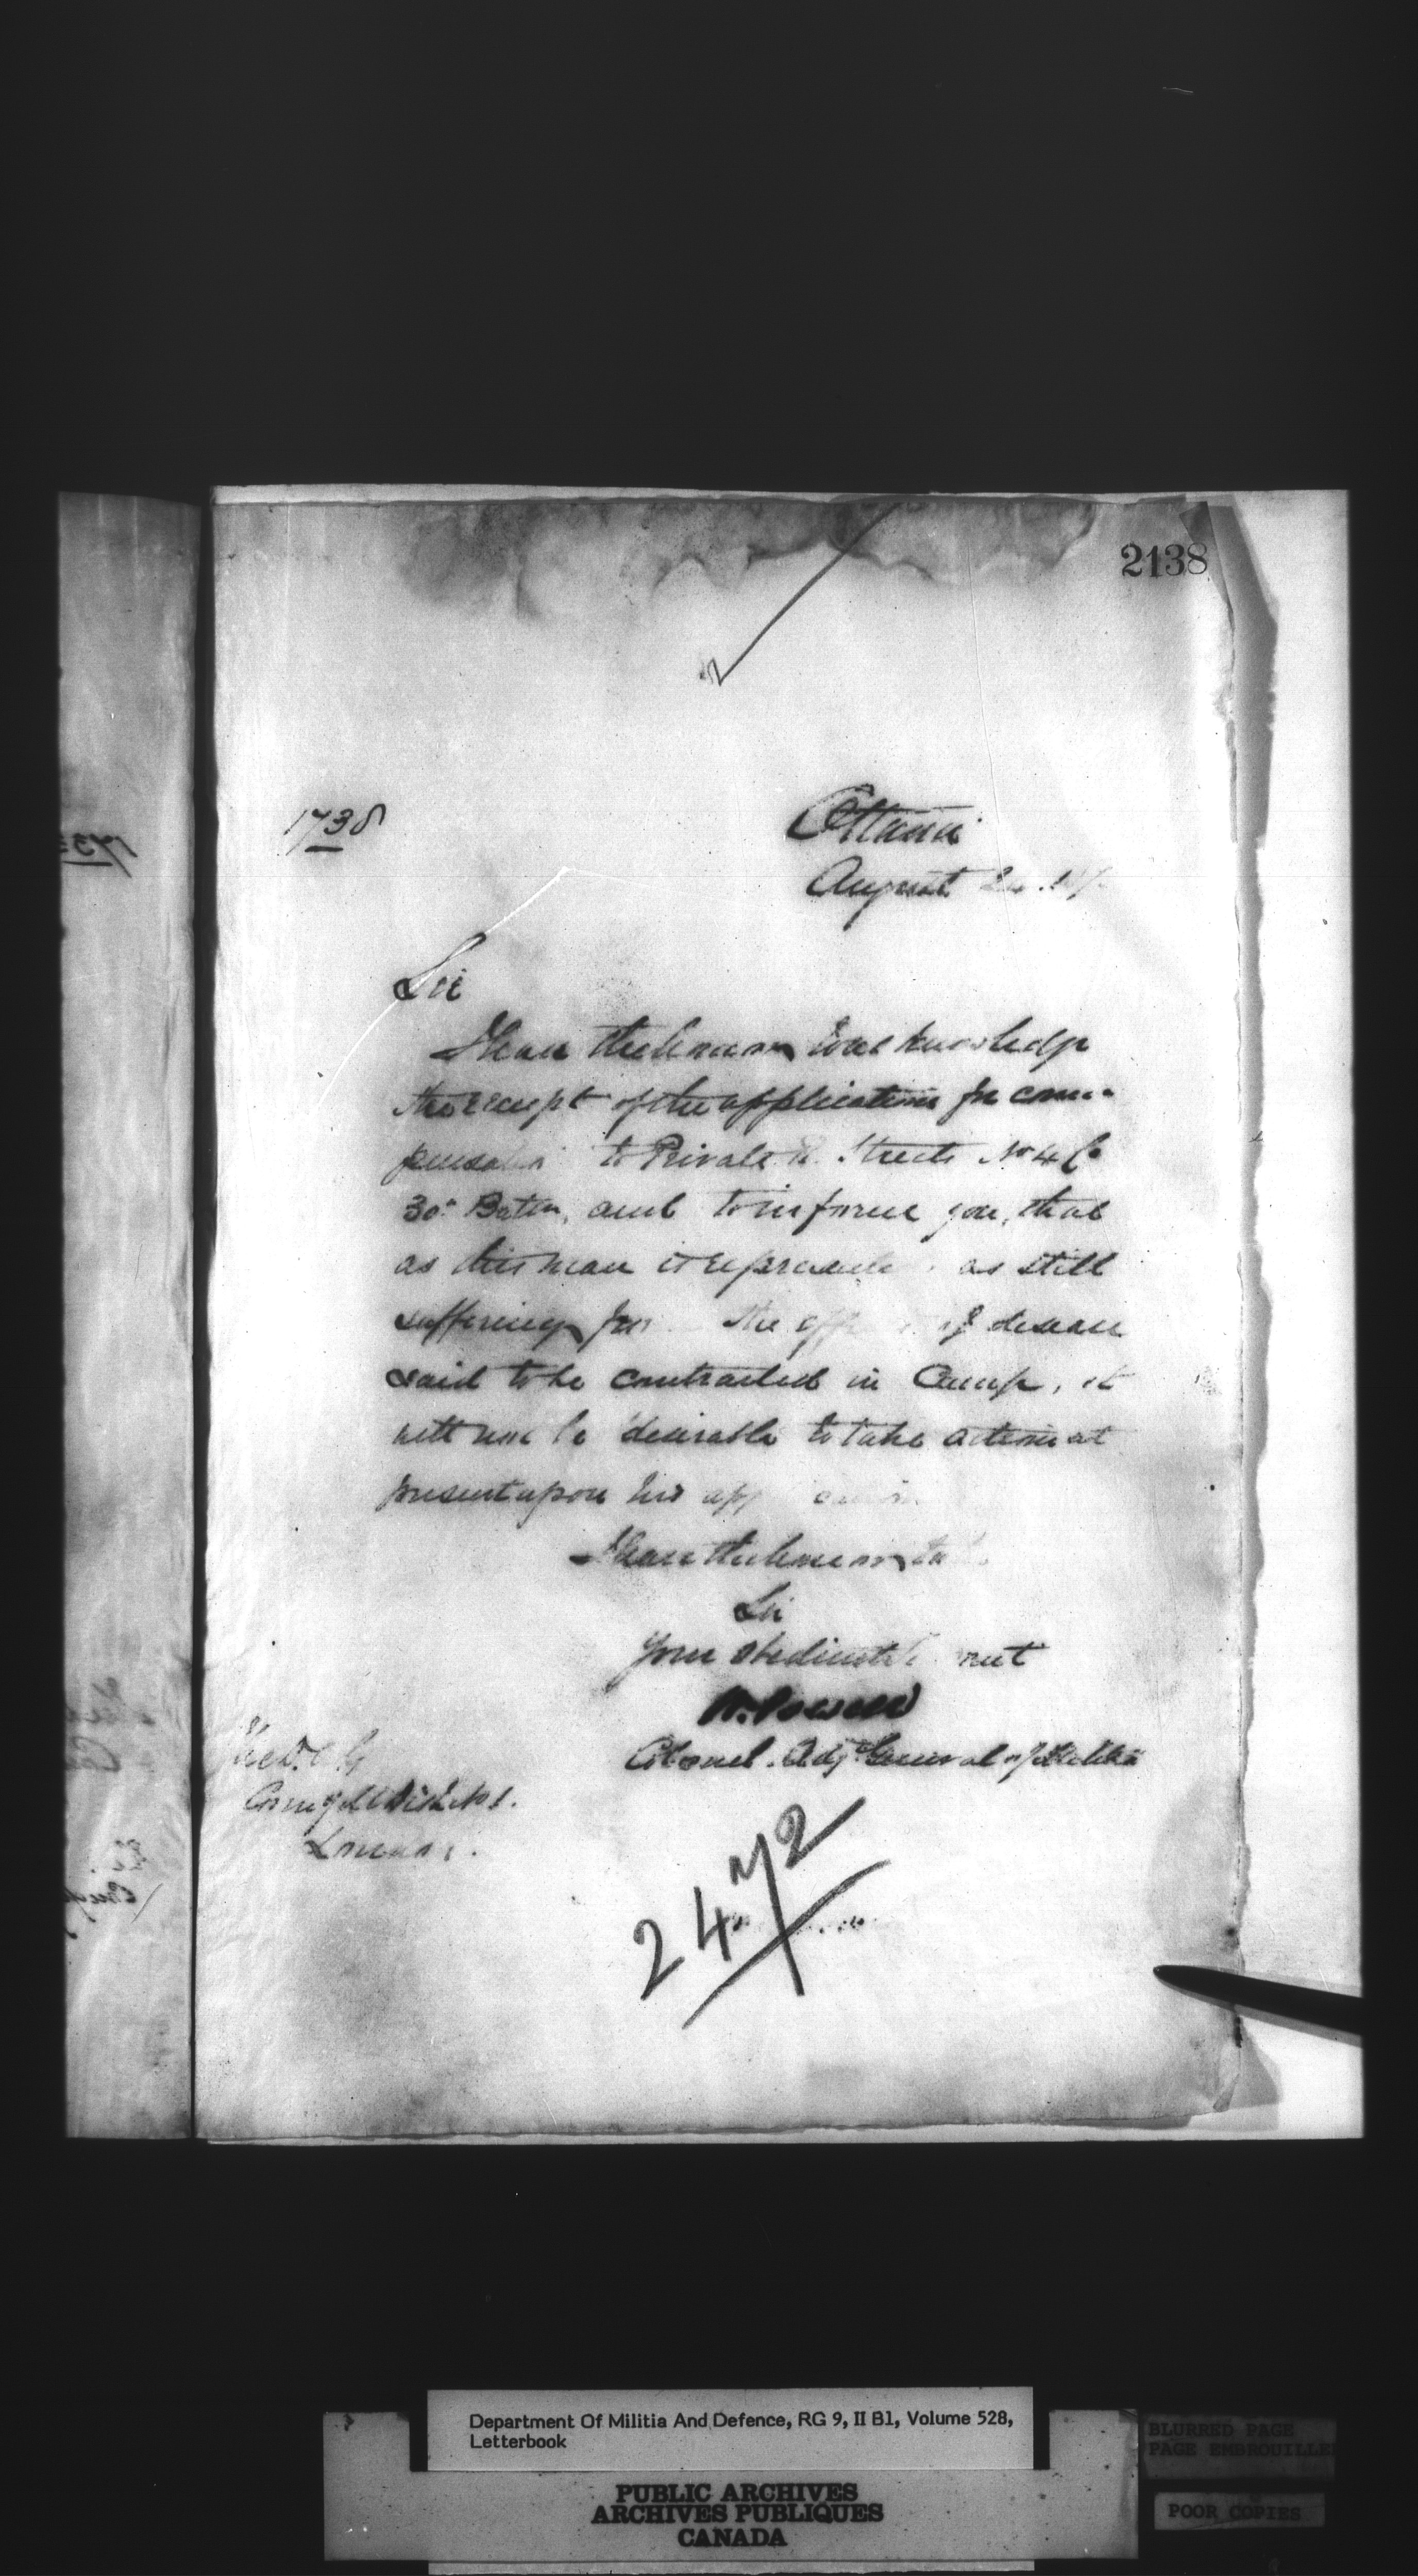 2138
1738
Ottawa
August
Sir
I have the honor to acknowledge
the receipt of the application for com-
pensation to Private Streets No 4 Co
30th Battn, and to inform you, that
as this man is represented as still
suffering from the effects of disease
said to be contracted in Camp, it
will not be desirable to take action at
present upon his application
I have the honor to be
Sir
Your obedient servant
W. Powell
Colonel. Adjt General of Militia
The D. A. G
Comg Mil Dist No 1.
London.
2472
Department Of Militia And Defence, RG 9, II B1, Volume 528,
Letterbook
PUBLIC ARCHIVES
ARCHIVES PUBLIQUES
CANADA
BLURRED PAGE
PAGE EMBROUILLE
POOR COPIES